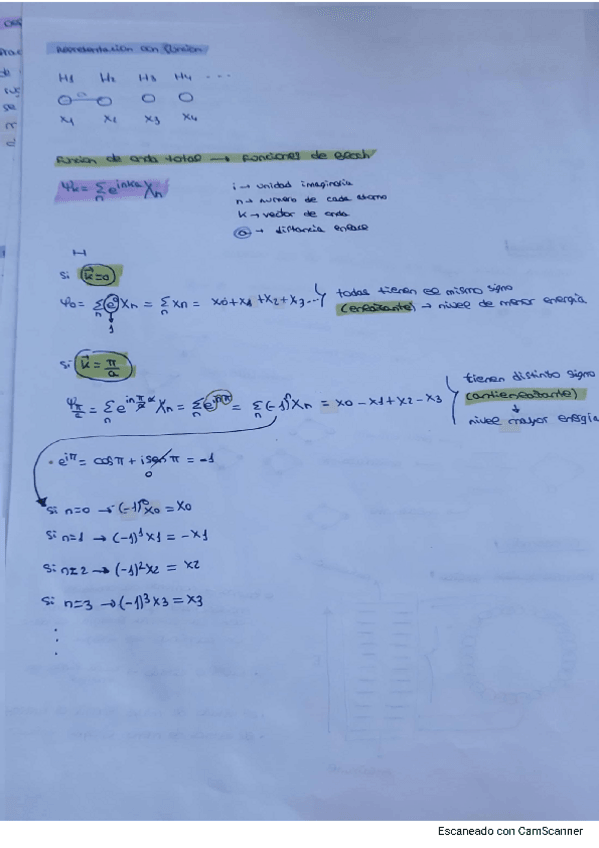 Representación con función
H1 H2 H3 H4 ...
a
X1 X1 X3 X4
Función de onda total → funciones de Bloch
Ψk = Σn e^inka Xn
i → unidad imaginaria
n → numero de cada átomo
K → vector de onda
a → distancia enlace
H
Si k=0
Ψ0 = Σn e^0 Xn = Σn Xn = X0+X1+X2+X3...
1
todas tienen el mismo signo
(enlazante) → nivel de menor energía
Si k = π/a
Ψπ/a = Σn e^inπ/a a Xn = Σn e^inπ = Σn (-1)^n Xn = X0 - X1 + X2 - X3
tienen distinto signo
(antienlazante)
↓
nivel mayor energía
• e^iπ = cosπ + i senπ = -1
0
Si n=0 → (-1)^0 X0 = X0
Si n=1 → (-1)^1 X1 = -X1
Si n=2 → (-1)^2 X2 = X2
Si n=3 → (-1)^3 X3 = X3
Escaneado con CamScanner